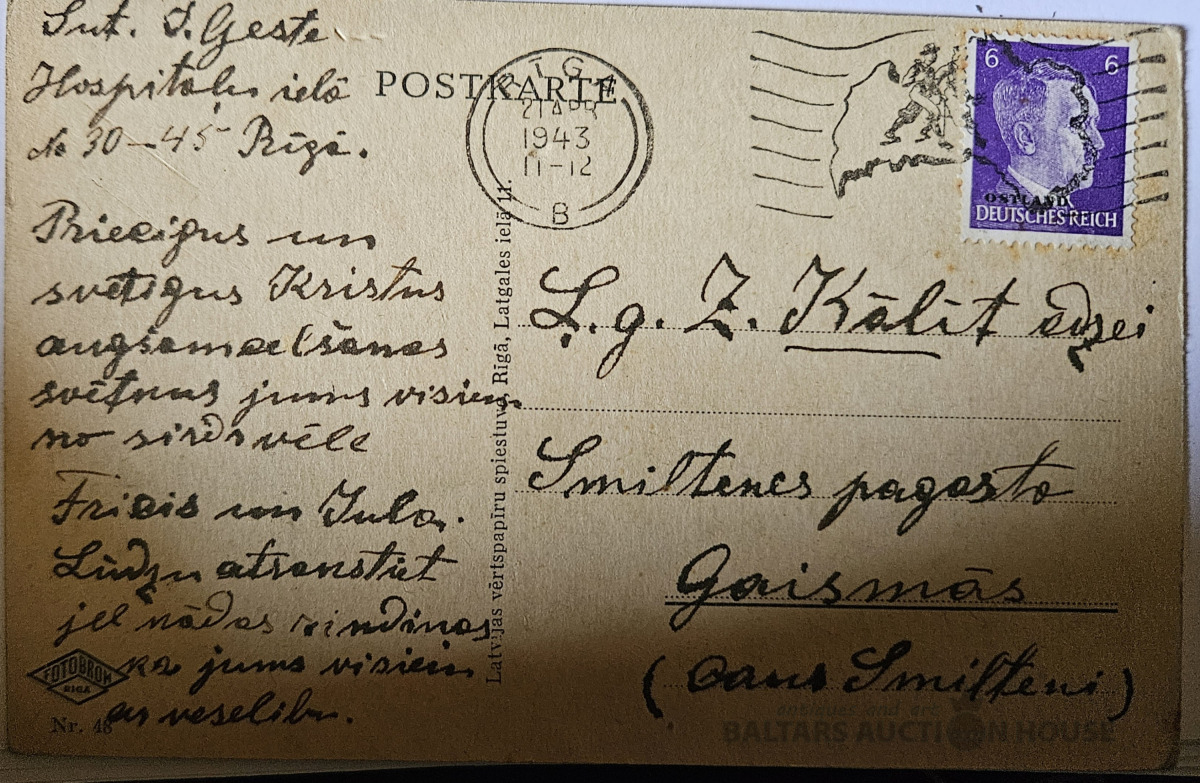 Sut. J. Geste
Hospitāļu ielā
№ 30–45 Rīgā.
Priecīgus un
svētīgus Kristus
augšamcelšanas
svētkus jums visiem
no sirds vēlē
Fricis un Jula.
Lūdzu atrakstiet
jel kādas rindiņas
kā jums visiem
ar veselību.
FOTOBROM
RIGA
Nr. 48
POSTKARTE
RIGA
21 APR
1943
11-12
B
6 6
OSTLAND
DEUTSCHES REICH
Latvijas vērtspapīru spiestuve, Rīgā, Latgales ielā 11.
Ļ. g. Z. Kālīt kdzei
Smiltenes pagasta
Gaismās
(caur Smilteni)
antiques and art
BALTARS AUCTION HOUSE